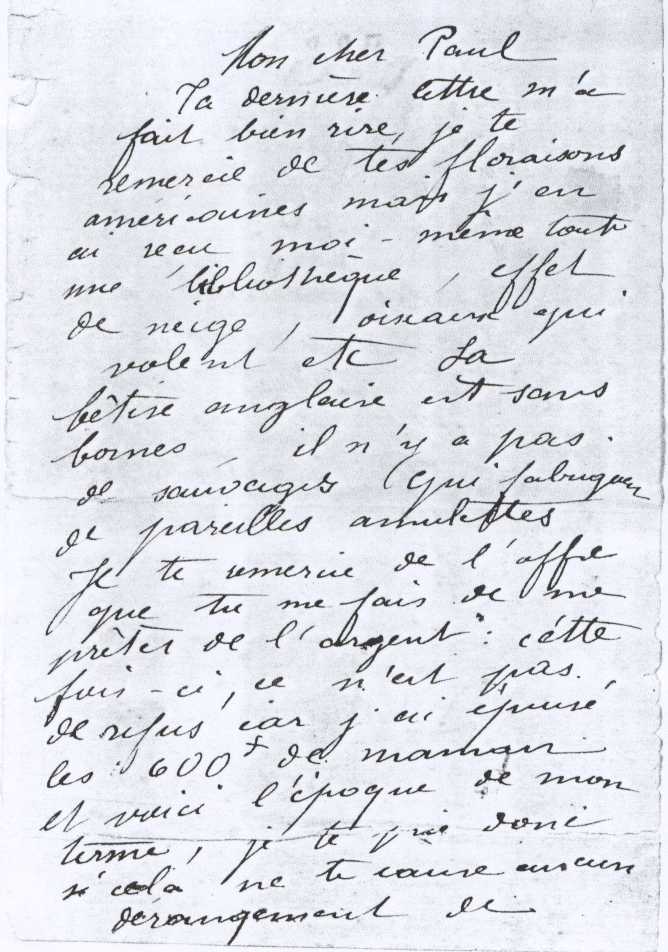 Mon cher Paul
Ta dernière lettre m'a
fait bien rire, je te
remercie de tes floraisons
américaines mais j'en
ai reçu moi-même toute
une bibliothèque, effet
de neige, oiseaux qui
volent etc La
bêtise anglaise est sans
bornes, il n'y a pas
de sauvages qui fabriquent
de pareilles amulettes
Je te remercie de l'offre
que tu me fais de me
prêter de l'argent : cette
fois-ci, ce n'est pas
de refus car j'ai épuisé
les 600 f de maman
et voici l'époque de mon
terme, je te prie donc
si cela ne te cause aucun
dérangement de